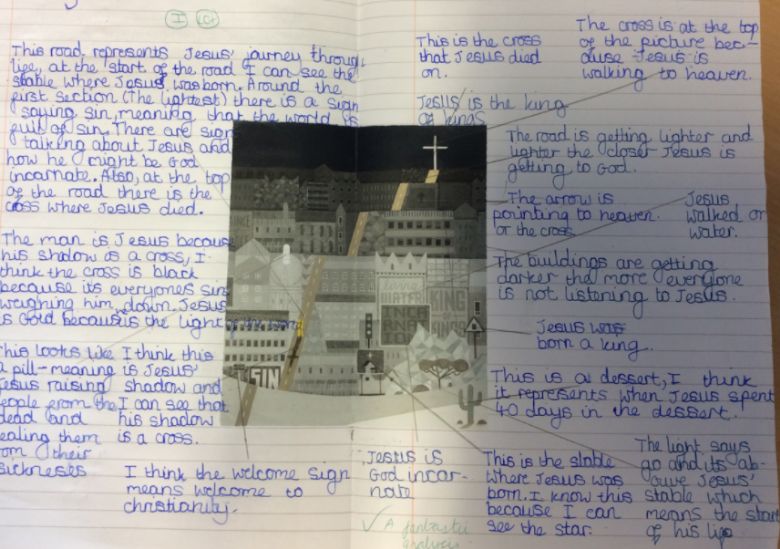 I C
This road represents Jesus' journey through
life, at the start of the road I can see the
stable where Jesus was born. Around the
first section (The lightest) there is a sign
saying sin, meaning that the world is
full of sin. There are sign
talking about Jesus and
how he might be God
incarnate. Also, at the top
of the road there is the
cross where Jesus died.
The man is Jesus because
his shadow is a cross, I
think the cross is black
because its everyones sin
weighing him down. Jesus
is Gold because is the light of the world
This looks like
a pill- meaning
Jesus raising
people from the
dead and
healing them
from their
sicknesses
I think this
is Jesus'
shadow and
I can see that
his shadow
is a cross.
I think the welcome sign
means welcome to
christianity.
This is the cross
that Jesus died
on.
Jesus is the king
of kings
The cross is at the top
of the picture bec-
ause Jesus is
walking to heaven.
The road is getting lighter and
lighter the closer Jesus is
getting to God.
The arrow is
pointing to heaven.
or the cross
Jesus
walked on
water.
The buildings are getting
darker the more everyone
is not listening to Jesus.
Jesus was
born a king.
This is a dessert, I think
it represents when Jesus spent
40 days in the dessert.
Jesus is
God incar-
nate
This is the stable
where Jesus was
born. I know this
because I can
see the star.
The light says
go and its ab-
ouve Jesus'
stable which
means the start
of his life
A fantastic
analysis
WATER
INCA
RNA
KING
OF
KINGS
SIN